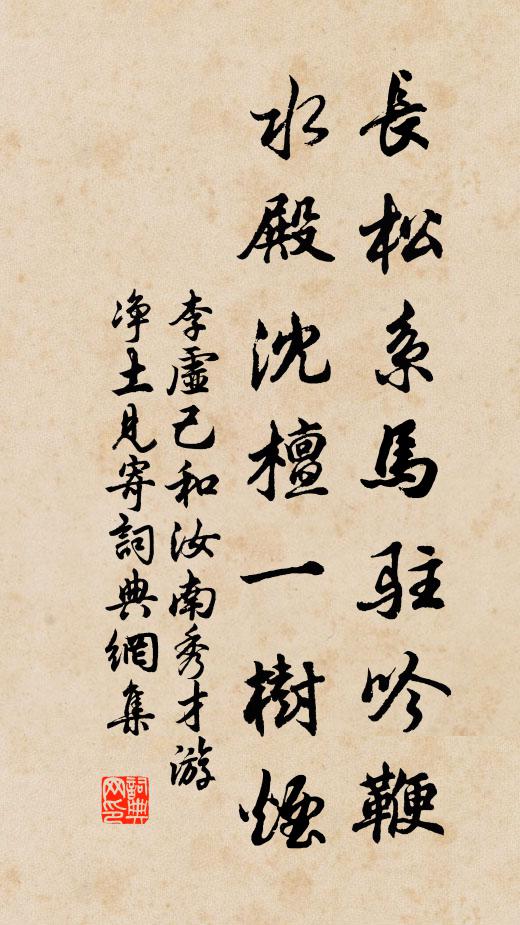 長松系馬駐吟鞭
水殿沈檀一樹煙
李虛己和汝南秀才游
净土見寄詞典網集
詞典网印